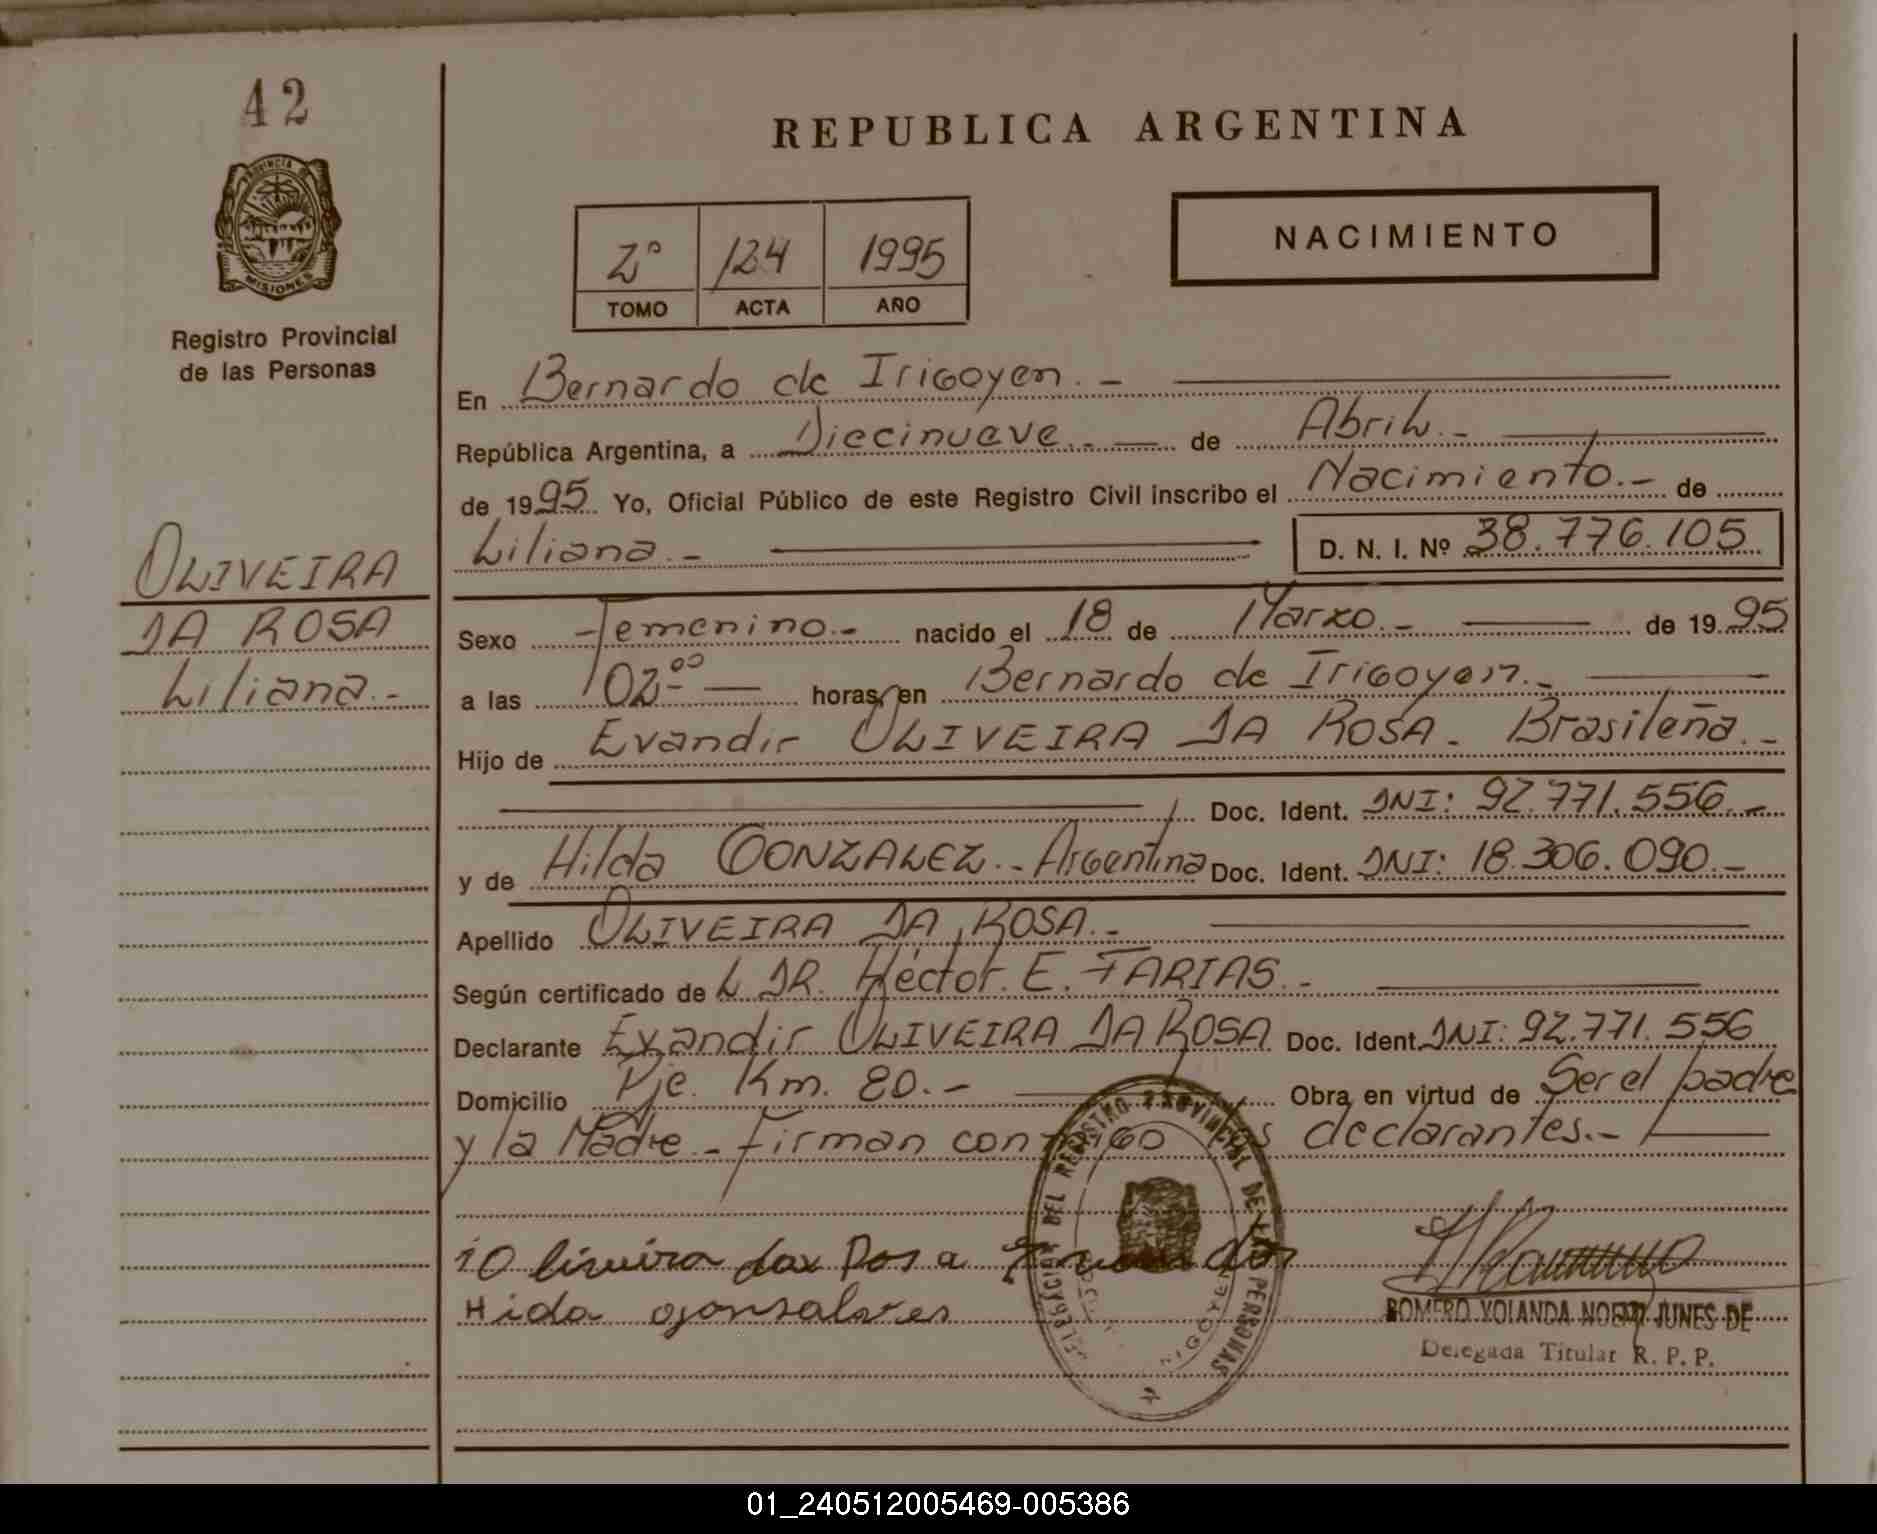 42
REPUBLICA ARGENTINA
PROVINCIA DE
MISIONES
Registro Provincial
de las Personas
2º 124 1995
TOMO ACTA AÑO
NACIMIENTO
En Bernardo de Irigoyen.-
República Argentina, a Diecinueve.- de Abril.-
de 1995. Yo, Oficial Público de este Registro Civil inscribo el Nacimiento.- de
Liliana.- D. N. I. Nº 38.776.105
OLIVEIRA
DA ROSA
Liliana.-
Sexo Femenino.- nacido el 18 de Marzo.- de 1995
a las 02 00 horas, en Bernardo de Irigoyen.-
Hijo de Evandir OLIVEIRA DA ROSA- Brasileña.-
Doc. Ident. DNI: 92.771.556.-
y de Hilda GONZALEZ.- Argentina Doc. Ident. DNI: 18.306.090.-
Apellido OLIVEIRA DA ROSA.-
Según certificado de L DR. Héctor. E. FARIAS.-
Declarante Evandir OLIVEIRA DA ROSA Doc. Ident. DNI: 92.771.556
Domicilio Pje. Km. 80.- Obra en virtud de Ser el padre
y la Madre.- Firman conmigo los declarantes.-
DELEGACION DEL REGISTRO PROVINCIAL DE LAS PERSONAS
Oliveira da Rosa
Hida gonsalves
ROMERO YOLANDA NOEMI JUNES DE
Delegada Titular R. P. P.
01_240512005469-005386